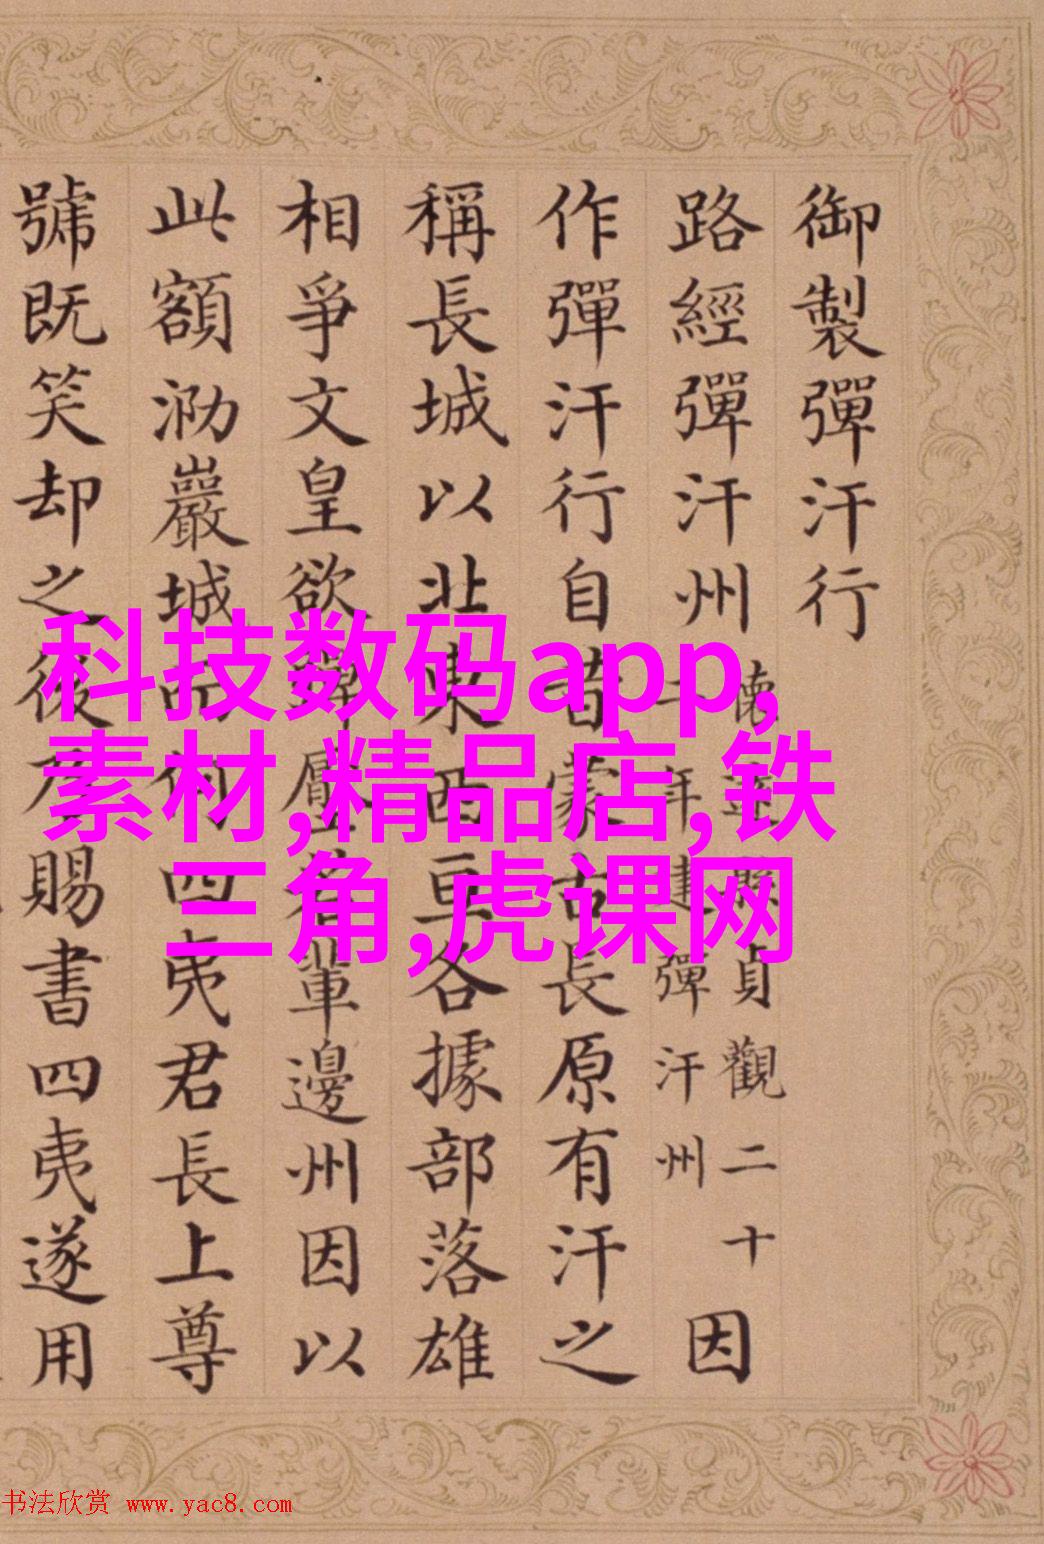 御製彈汗行
路經彈汗州
縣貞觀二十
年建彈汗州
因
作彈汗行自昔蒙古長原有汗之
稱長城以北東西亘各據部落雄
相爭文皇欲彈壓若輩邊州因以
此額泐巖城四夷君長上尊
號既笑却之後賜書四夷遂用
科技数码app,
素材,精品店,铁
三角,虎课网
书法欣赏 www.yac8.com